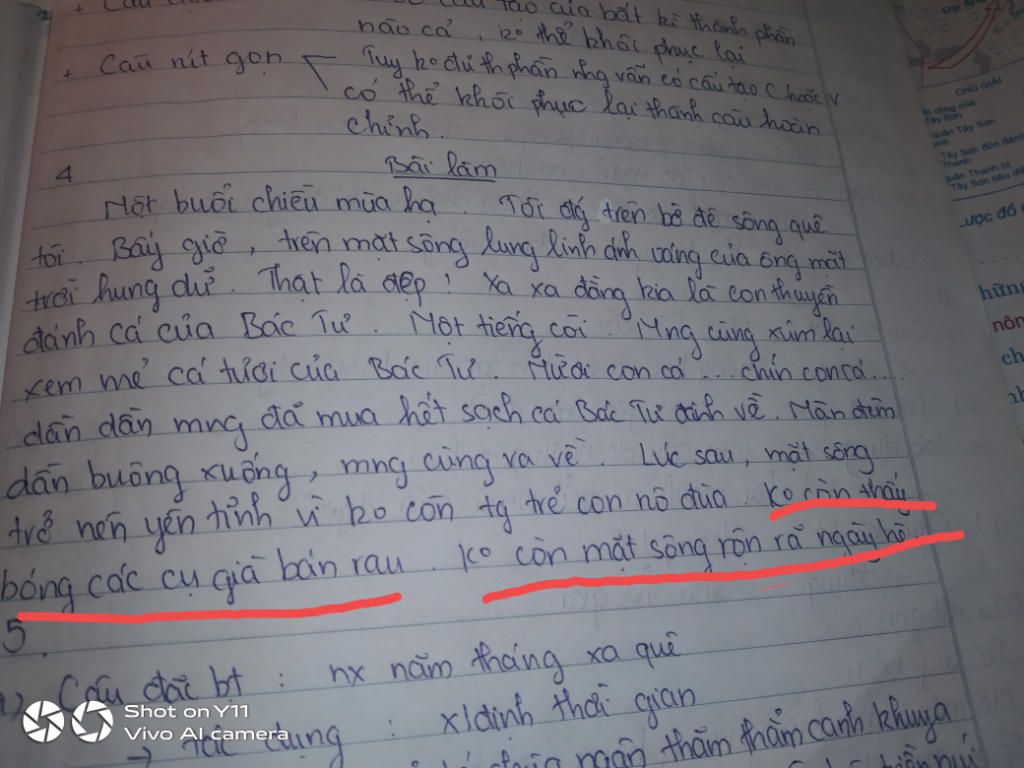 + Câu
tạo của bất kì thành phần
nào cả, ko thể khôi phục lại
+ Câu rút gọn
Tuy ko đủ thphần nhg vẫn có cấu tạo C hoặc V
có thể khôi phục lại thành câu hoàn
chỉnh.
4
Bài làm
Một buổi chiều mùa hạ. Tôi đg trên bờ đê sông quê
tôi. Bấy giờ, trên mặt sông lung linh ánh vàng của ông mặt
trời hung dử. Thạt là đẹp! Xa xa đằng kia là con thuyền
đánh cá của Bác Tư. Một tiếng còi. Mng cùng xúm lại
xem mẻ cá tươi của Bác Tư. Mười con cá... chín con cá...
dần dần mng đã mua hết sạch cá Bác Tư đánh về. Màn đêm
dần buông xuống, mng cùng ra về. Lúc sau, mặt sông
trở nên yên tỉnh vì ko còn tg trẻ con nô đùa. Ko còn thấy
bóng các cụ già bán rau. Ko còn mặt sông rộn rã ngày hè.
5.
a) Câu đặc bt : nx năm tháng xa quê
→ tác dụng : x/định thời gian
ngân thăm thẳm canh khuya
Shot on Y11
Vivo AI camera
CHÚ GIẢI
công của
Tây Sơn
quân Tây Sơn
Tây Sơn đón đánh
Thanh
quân Thanh bị
Tây Sơn tiêu diệt
Lược đồ
hững
nôn
ch